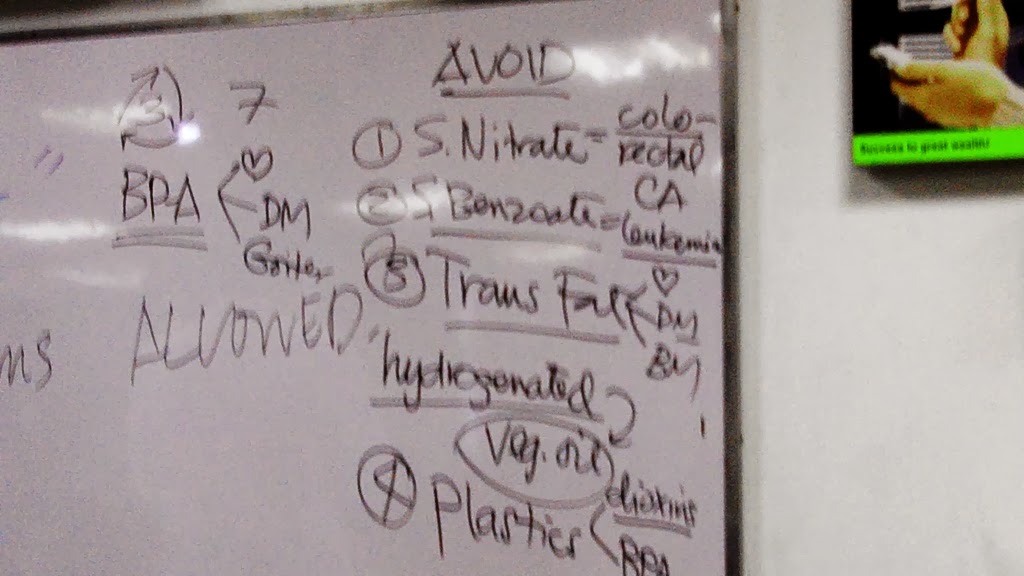 AVOID
① S. Nitrate = colo-
rectal
CA
② S Benzoate = Leukemia
③ Trans Fat < ♡
DM
BM
hydrogenated
Veg. oil
④ Plastics < dioxins
BPA
7
BPA < ♡
DM
Goiter
ALLOWED
ms
Success to great wealth!